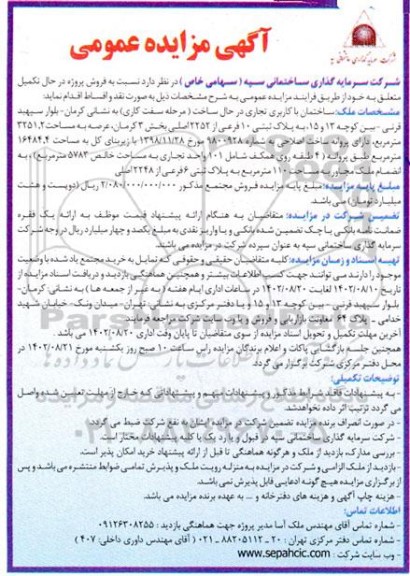 آگهی مزایده عمومی
شرکت سرمایه گذاری ساختمانی سپه ( سهامی خاص ) در نظر دارد نسبت به فروش پروژه در حال تکمیل
متعلق به خود از طریق فرایند مزایده عمومی به شرح مشخصات ذیل به صورت نقد و اقساط اقدام نماید:
مشخصات ملک: ساختمان با کاربری تجاری در حال ساخت ( مرحله سفت کاری) به نشانی کرمان-بلوار سپهبد
قرنی - بین کوچه ۱۳ و ۱۵، به پلاک ثبتی ۱۰ فرعی از ۲۲۵۲ اصلی بخش ۳ کرمان، عرصه به مساحت ۳۲۵۱.۲
مترمربع، دارای پروانه ساخت اصلاحی به شماره ۹۸۰۰۹۲۸ مورخ ۱۳۹۸/۱۱/۲۸ با زیربنای کل به مساحت ۱۶۴۸۴.۴
مترمربع طبق پروانه ( ۴ طبقه روی همکف شامل ۱۰۱ واحد تجاری به مساحت خالص ۵۷۸۳ مترمربع ) به
انضمام ملک مجاور به مساحت ۱۱۰ مترمربع به پلاک ثبتی ۶ فرعی از ۲۲۴۸ اصلی
مبلغ پایه مزایده: مبلغ پایه مزایده فروش مجتمع مذکور ۲/۰۸۰/۰۰۰/۰۰۰/۰۰۰ ریال (دویست و هشت
میلیارد تومان) می باشد.
تضمین شرکت در مزایده: متقاضیان به هنگام ارائه پیشنهاد قیمت موظف به ارائه یک فقره
ضمانت نامه بانکی یا چک تضمین شده بانکی و یا واریز نقدی به مبلغ یکصد و چهار میلیارد ریال در وجه شرکت
سرمایه گذاری ساختمانی سپه به عنوان سپرده شرکت در مزایده می باشند.
تهیه اسناد و زمان مزایده: کلیه متقاضیان حقیقی و حقوقی که تمایل به خرید مجتمع یاد شده با وضعیت
موجود را دارند می توانند جهت کسب اطلاعات بیشتر و همچنین هماهنگی بازدید و دریافت اسناد مزایده از
تاریخ ۱۴۰۲/۰۸/۱۰ لغایت ۱۴۰۲/۰۸/۲۰ در ساعات اداری ایام هفته ( به غیر از جمعه ها ) به نشانی: کرمان-
بلوار سپهبد قرنی - بین کوچه ۱۳ و ۱۵ و یا دفتر مرکزی به نشانی: تهران - میدان ونک - خیابان شهید
خدامی - پلاک ۶۴ معاونت بازاریابی و فروش و یا وب سایت شرکت مراجعه فرمایند.
آخرین مهلت تکمیل و تحویل اسناد مزایده از سوی متقاضیان تا پایان وقت اداری ۱۴۰۲/۰۸/۲۰ می باشد.
همچنین جلسه بازگشایی پاکات و اعلام برندگان مزایده راس ساعت ۱۰ صبح روز یکشنبه مورخ ۱۴۰۲/۰۸/۲۱ در
محل دفتر مرکزی شرکت برگزار می گردد.
توضیحات تکمیلی:
- به پیشنهادات فاقد شرایط مذکور و پیشنهادات مبهم و پیشنهاداتی که خارج از مهلت تعیین شده واصل
می گردد ترتیب اثر داده نخواهد شد.
- در صورت انصراف برنده مزایده تضمین شرکت در مزایده ایشان به نفع شرکت ضبط می گردد.
- شرکت سرمایه گذاری ساختمانی سپه در قبول و یا رد یک یا کلیه پیشنهادات مختار است.
- بررسی مدارک، بازدید از ملک و هرگونه هماهنگی تا قبل از ارائه پیشنهاد خرید امکان پذیر است.
- بازدید از ملک الزامی و شرکت در مزایده به منزله رویت ملک و پذیرش تمامی ضوابط منتشره می باشد و پس
از برگزاری مزایده هیچ گونه ادعایی قابل پذیرش نمی باشد.
- هزینه چاپ آگهی و هزینه های دفترخانه و ... به عهده برنده مزایده می باشد.
اطلاعات تماس:
- شماره تماس آقای مهندس ملک آسا مدیر پروژه جهت هماهنگی بازدید : ۰۹۱۲۶۳۰۸۲۵۵
- شماره تماس دفتر مرکزی تهران : ۲۰ - ۸۸۲۰۵۱۱۲ - ۰۲۱ ( آقای مهندس داوری داخلی: ۴۰۷ )
- وب سایت شرکت : www.sepahcic.com